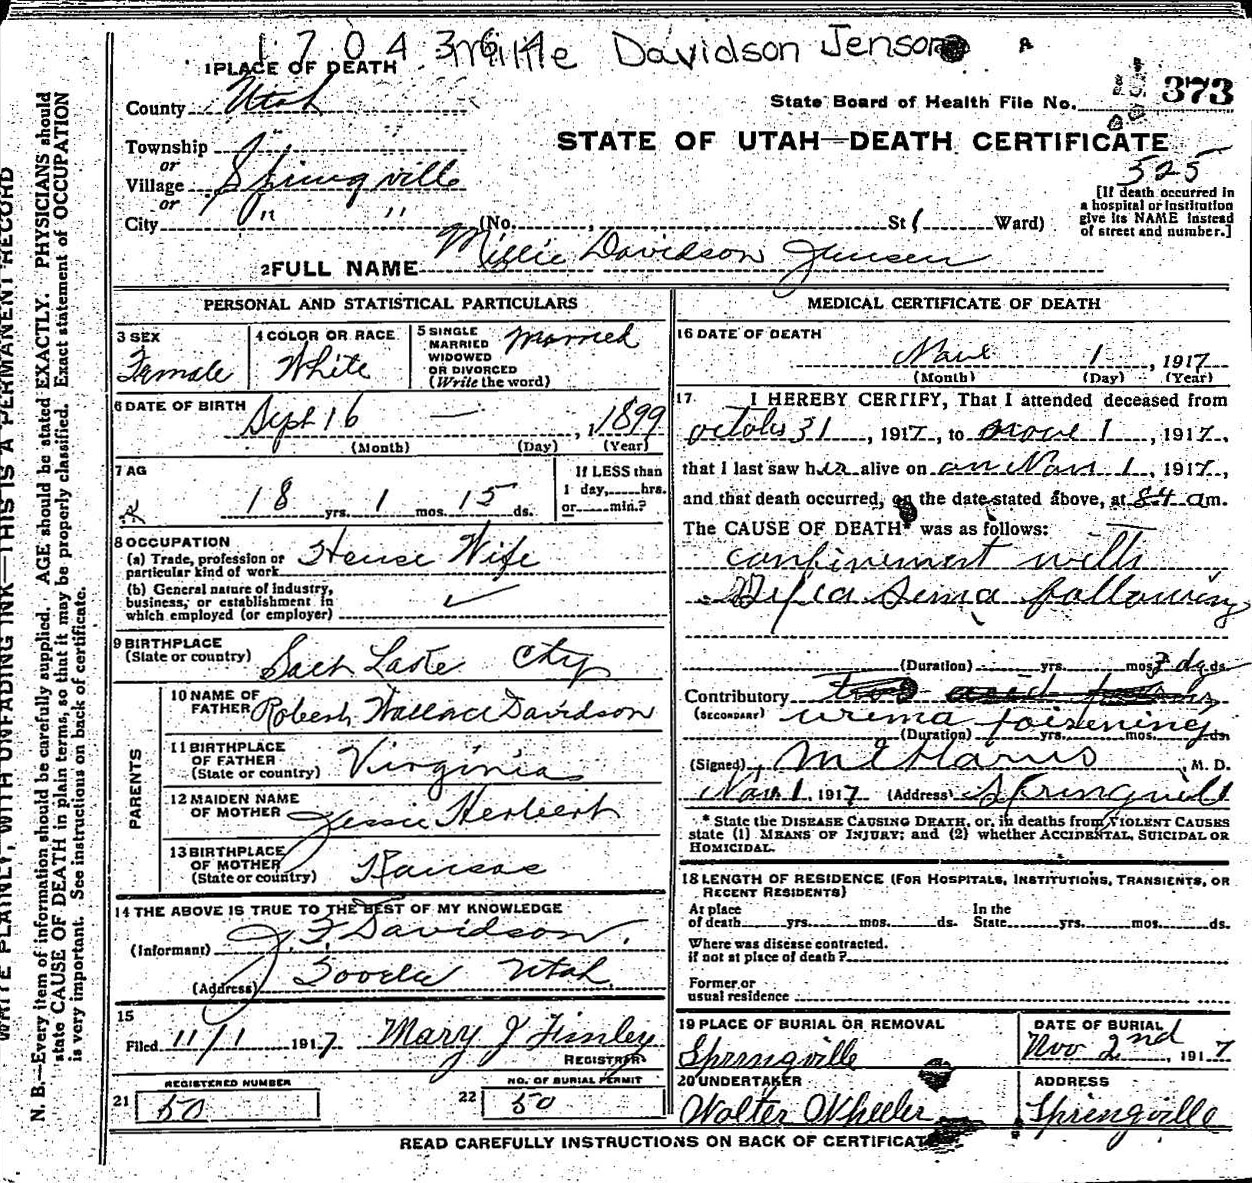 1 7 0 4 3 6 4
Millie Davidson Jenson
1 PLACE OF DEATH
County Utah
State Board of Health File No. 373
STATE OF UTAH—DEATH CERTIFICATE
525
Township
or
Village Springville
or
City " " (No. St Ward)
[If death occurred in
a hospital or institution
give its NAME instead
of street and number.]
2 FULL NAME Millie Davidson Jensen
PERSONAL AND STATISTICAL PARTICULARS
3 SEX
Female
4 COLOR OR RACE
White
5 SINGLE
MARRIED
WIDOWED
OR DIVORCED
(Write the word)
Married
6 DATE OF BIRTH
Sept 16 — , 1899
(Month) (Day) (Year)
7 AG
18 yrs. 1 mos. 15 ds.
If LESS than
1 day, hrs.
or min.?
8 OCCUPATION
(a) Trade, profession or
particular kind of work House Wife
(b) General nature of industry,
business, or establishment in
which employed (or employer)
9 BIRTHPLACE
(State or country) Salt Lake City
PARENTS
10 NAME OF
FATHER Robert Wallace Davidson
11 BIRTHPLACE
OF FATHER
(State or country) Virginia
12 MAIDEN NAME
OF MOTHER Jessie Herbert
13 BIRTHPLACE
OF MOTHER
(State or country) Kansas
14 THE ABOVE IS TRUE TO THE BEST OF MY KNOWLEDGE
(Informant) Davidson
(Address) Tooele Utah
15
Filed 11/1 1917 Mary J Finley
REGISTRAR
REGISTERED NUMBER
21 50
NO. OF BURIAL PERMIT
22 50
MEDICAL CERTIFICATE OF DEATH
16 DATE OF DEATH
Nov 1, 1917
(Month) (Day) (Year)
17. I HEREBY CERTIFY, That I attended deceased from
October 31, 1917, to Nove 1, 1917,
that I last saw her alive on on Nov 1, 1917,
and that death occurred, on the date stated above, at am.
The CAUSE OF DEATH* was as follows:
confinement with
following
(Duration) yrs. mos. ds.
Contributory
(SECONDARY) urema poisening
(Duration) yrs. mos. ds.
(Signed) , M. D.
Nov. 1 1917 (Address) Springvill
* State the DISEASE CAUSING DEATH, or, in deaths from VIOLENT CAUSES
state (1) MEANS OF INJURY; and (2) whether ACCIDENTAL, SUICIDAL OR
HOMICIDAL.
18 LENGTH OF RESIDENCE (FOR HOSPITALS, INSTITUTIONS, TRANSIENTS, OR
RECENT RESIDENTS)
At place
of death yrs. mos. ds.
In the
State yrs. mos. ds.
Where was disease contracted.
if not at place of death?
Former or
usual residence
19 PLACE OF BURIAL OR REMOVAL
Springville
DATE OF BURIAL
Nov 2nd, 1917
20 UNDERTAKER
Walter Wheeler
ADDRESS
Springville
READ CAREFULLY INSTRUCTIONS ON BACK OF CERTIFICATE
WRITE PLAINLY, WITH UNFADING INK—THIS IS A PERMANENT RECORD
N. B.—Every item of information should be carefully supplied. AGE should be stated EXACTLY. PHYSICIANS should
state CAUSE OF DEATH in plain terms, so that it may be properly classified. Exact statement of OCCUPATION
is very important. See instructions on back of certificate.